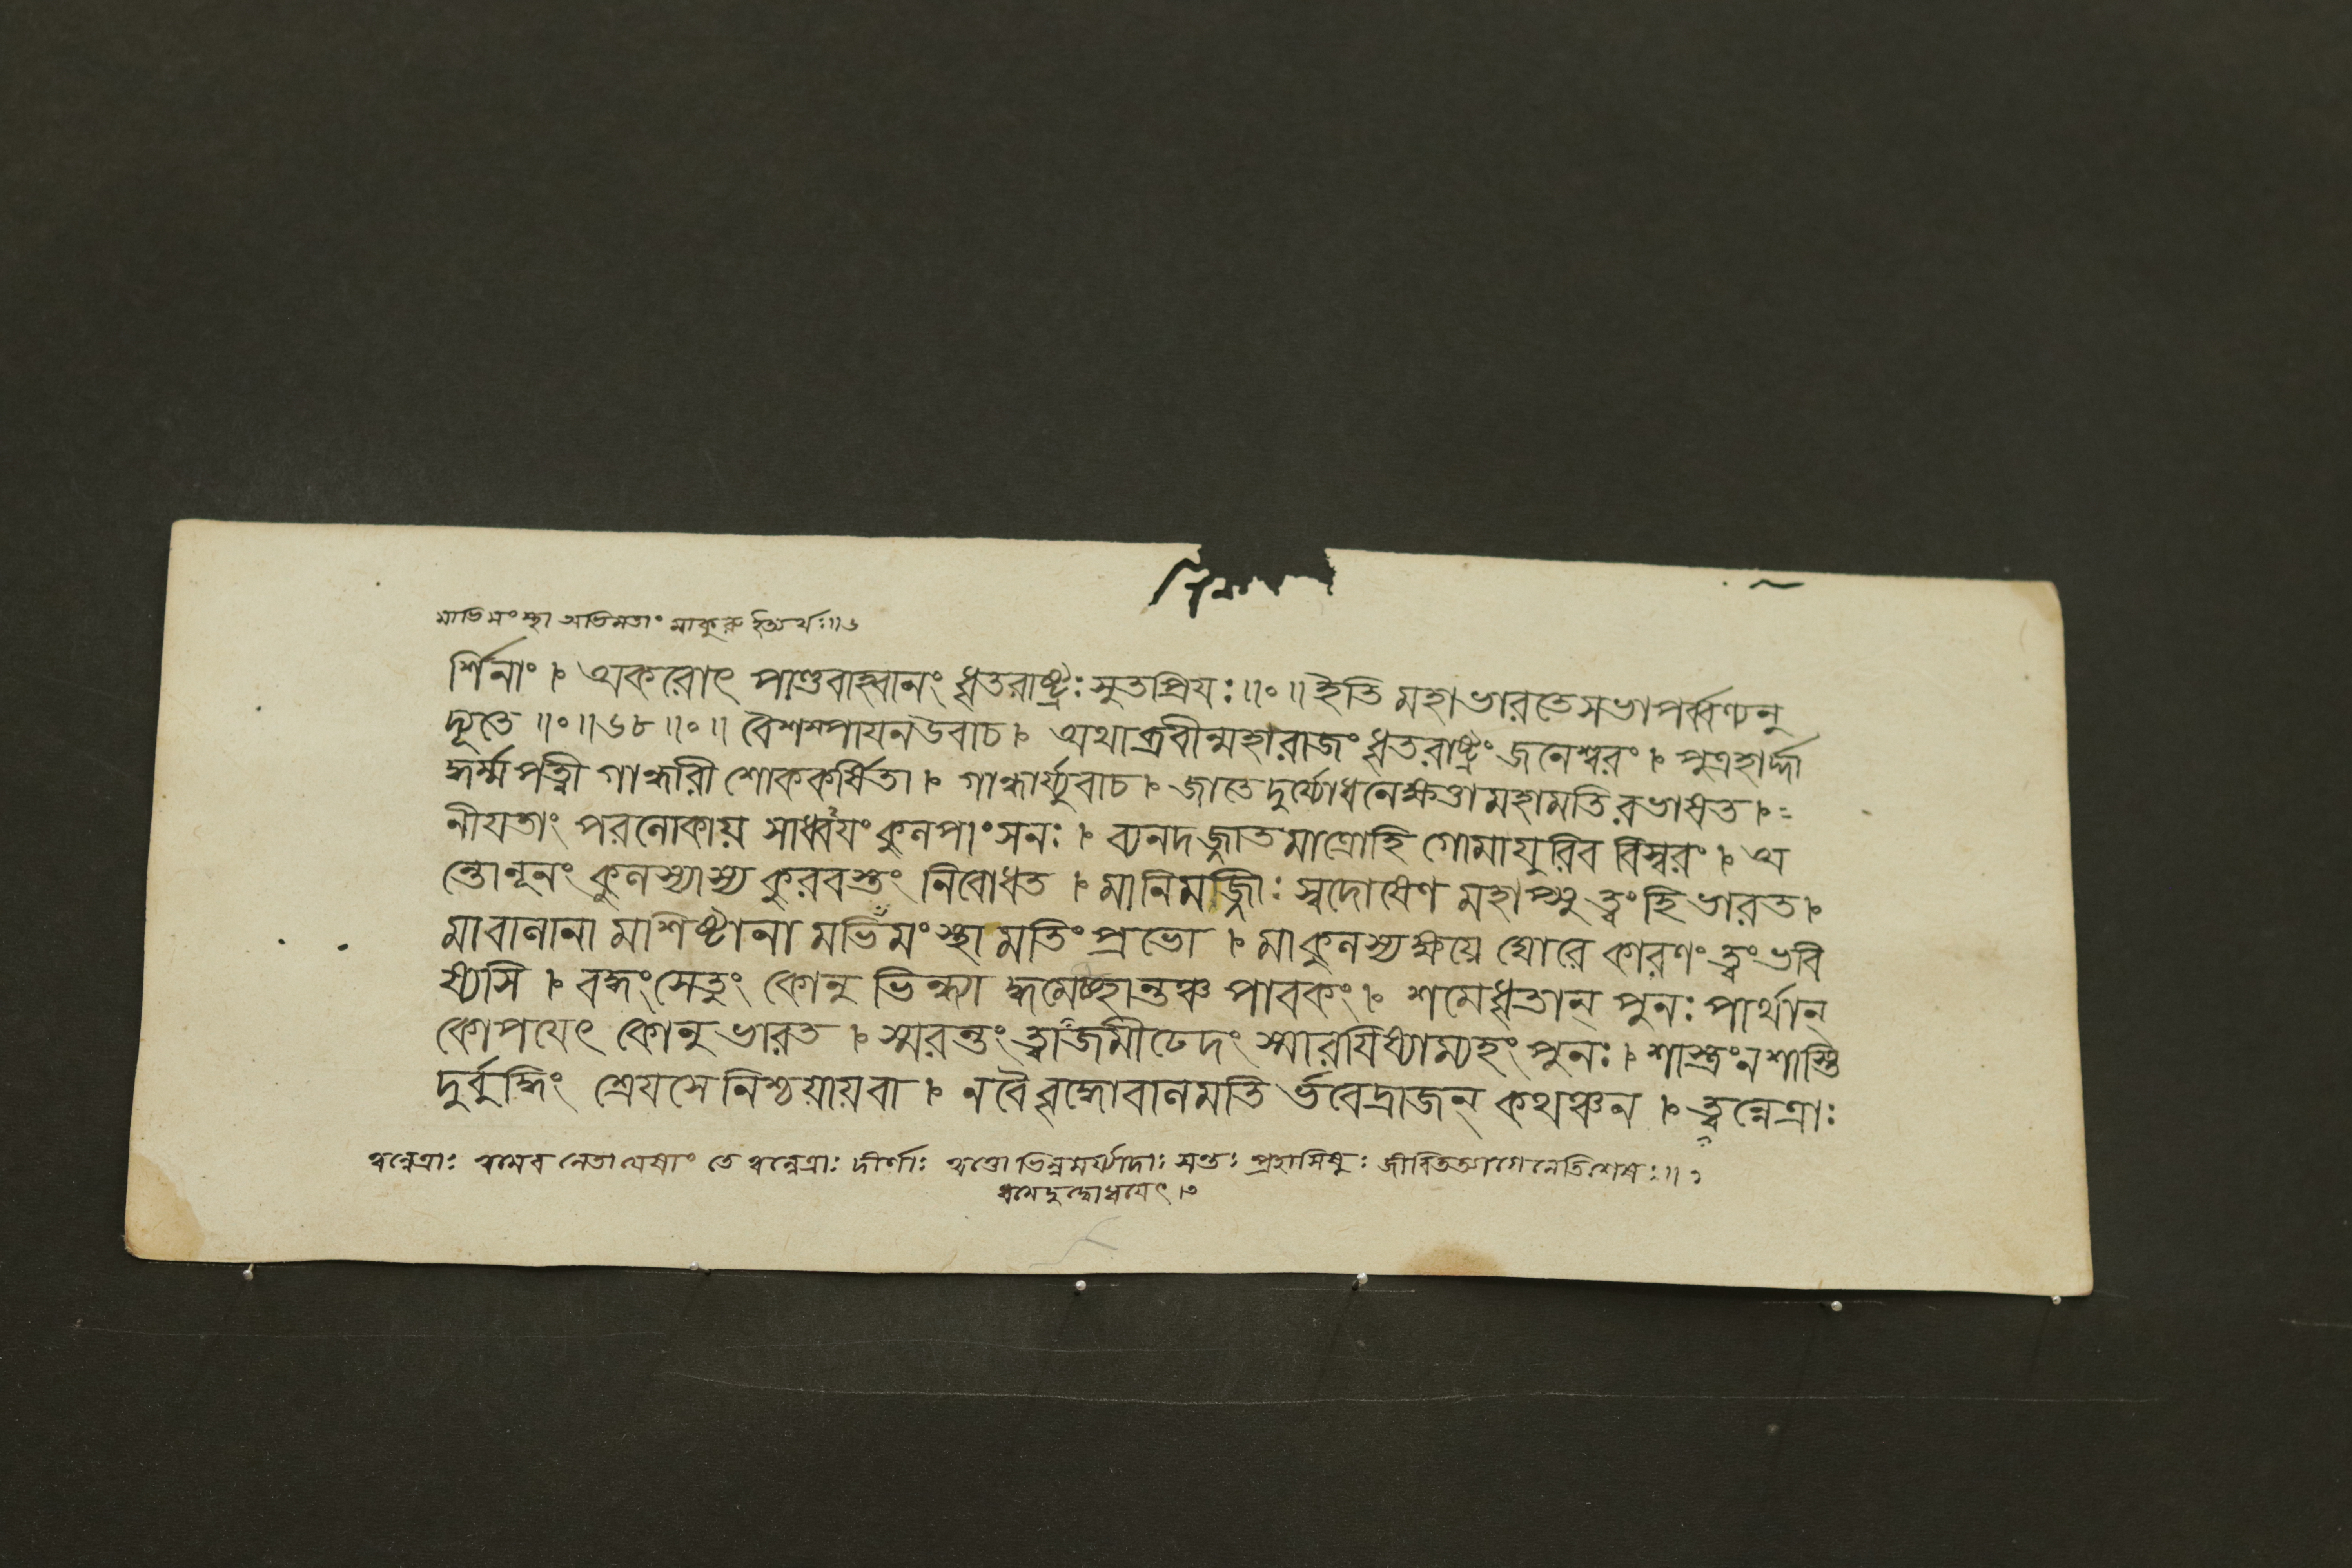 মাভিমংস্থা অভিমতাং মাকুরু ইত্যর্থঃ॥৬
র্শিনাং । অকরোৎ পাণ্ডবাহ্বানং ধৃতরাষ্ট্রঃ সুতপ্রিযঃ॥০॥ইতি মহাভারতেসভাপর্ব্বণ্যনু
দ্যূতে ॥০॥৬৮॥০॥ বৈশম্পাযনউবাচ । অথাব্রবীন্মহারাজং ধৃতরাষ্ট্রং জনেশ্বরং । পুত্রহার্দ্দা
দ্ধর্ম্মপত্নী গান্ধারী শোককর্ষিতা । গান্ধার্য্যুবাচ । জাতে দুর্য্যোধনেক্ষত্তামহামতিরভাষত ।
নীযতাং পরলোকায় সাধ্বযং কুলপাংসনঃ । ব্যনদজ্জাতমাত্রোহি গোমাযুরিব বিস্বরং । অ
ন্তোনূনং কুলস্যাস্য কুরবস্তং নিবোধত । মানিমজ্জীঃ স্বদোষেণ মহাপ্সু ত্বংহি ভারত ।
মাবালানামাশিষ্টানামভিমংস্থা মতিং প্রভো । মাকুলস্যক্ষয়ে ঘোরে কারণং ত্বংভবি
ষ্যসি । বদ্ধংসেতুং কোনু ভিন্দ্যা দ্ধমেচ্ছান্তঞ্চ পাবকং । শমেধৃতান্ পুনঃ পার্থান্
কোপযেৎ কোনু ভারত । স্মরন্তং ত্বাজমীঢেদং স্মারযিষ্যাম্যহং পুনঃ । শাস্ত্রংনশাস্তি
দুর্বুদ্ধিং শ্রেযসে নিশ্চয়ায়বা । নবৈবৃদ্ধোবালমতি র্ভবেদ্রাজন্ কথঞ্চন । ত্বন্নেত্রাঃ
ত্বন্নেত্রাঃ ত্বমেব নেতা যেষাং তে ত্বন্নেত্রাঃ দীর্ণাঃ ত্বত্তো ভিন্নমর্য্যাদাঃ সন্তঃ প্রহাসিষুঃ জীবিতত্যাগেনেতিশেষঃ॥